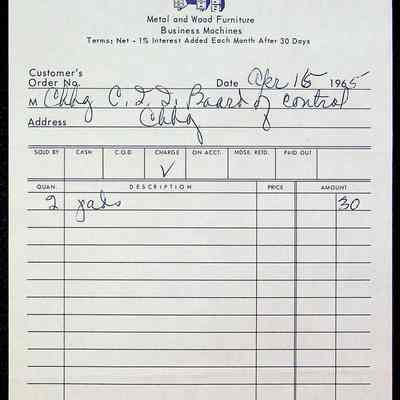 Metal and Wood Furniture
Business Machines
Terms: Net - 1% Interest Added Each Month After 30 Days
Customer's
Order No. Date Apr 15 1965
M Chhg C. I. I. Board of Control
Address Chhg
SOLD BY CASH C.O.D. CHARGE ON ACCT. MDSE. RETD. PAID OUT
✓
QUAN. DESCRIPTION PRICE AMOUNT
2 pads 30